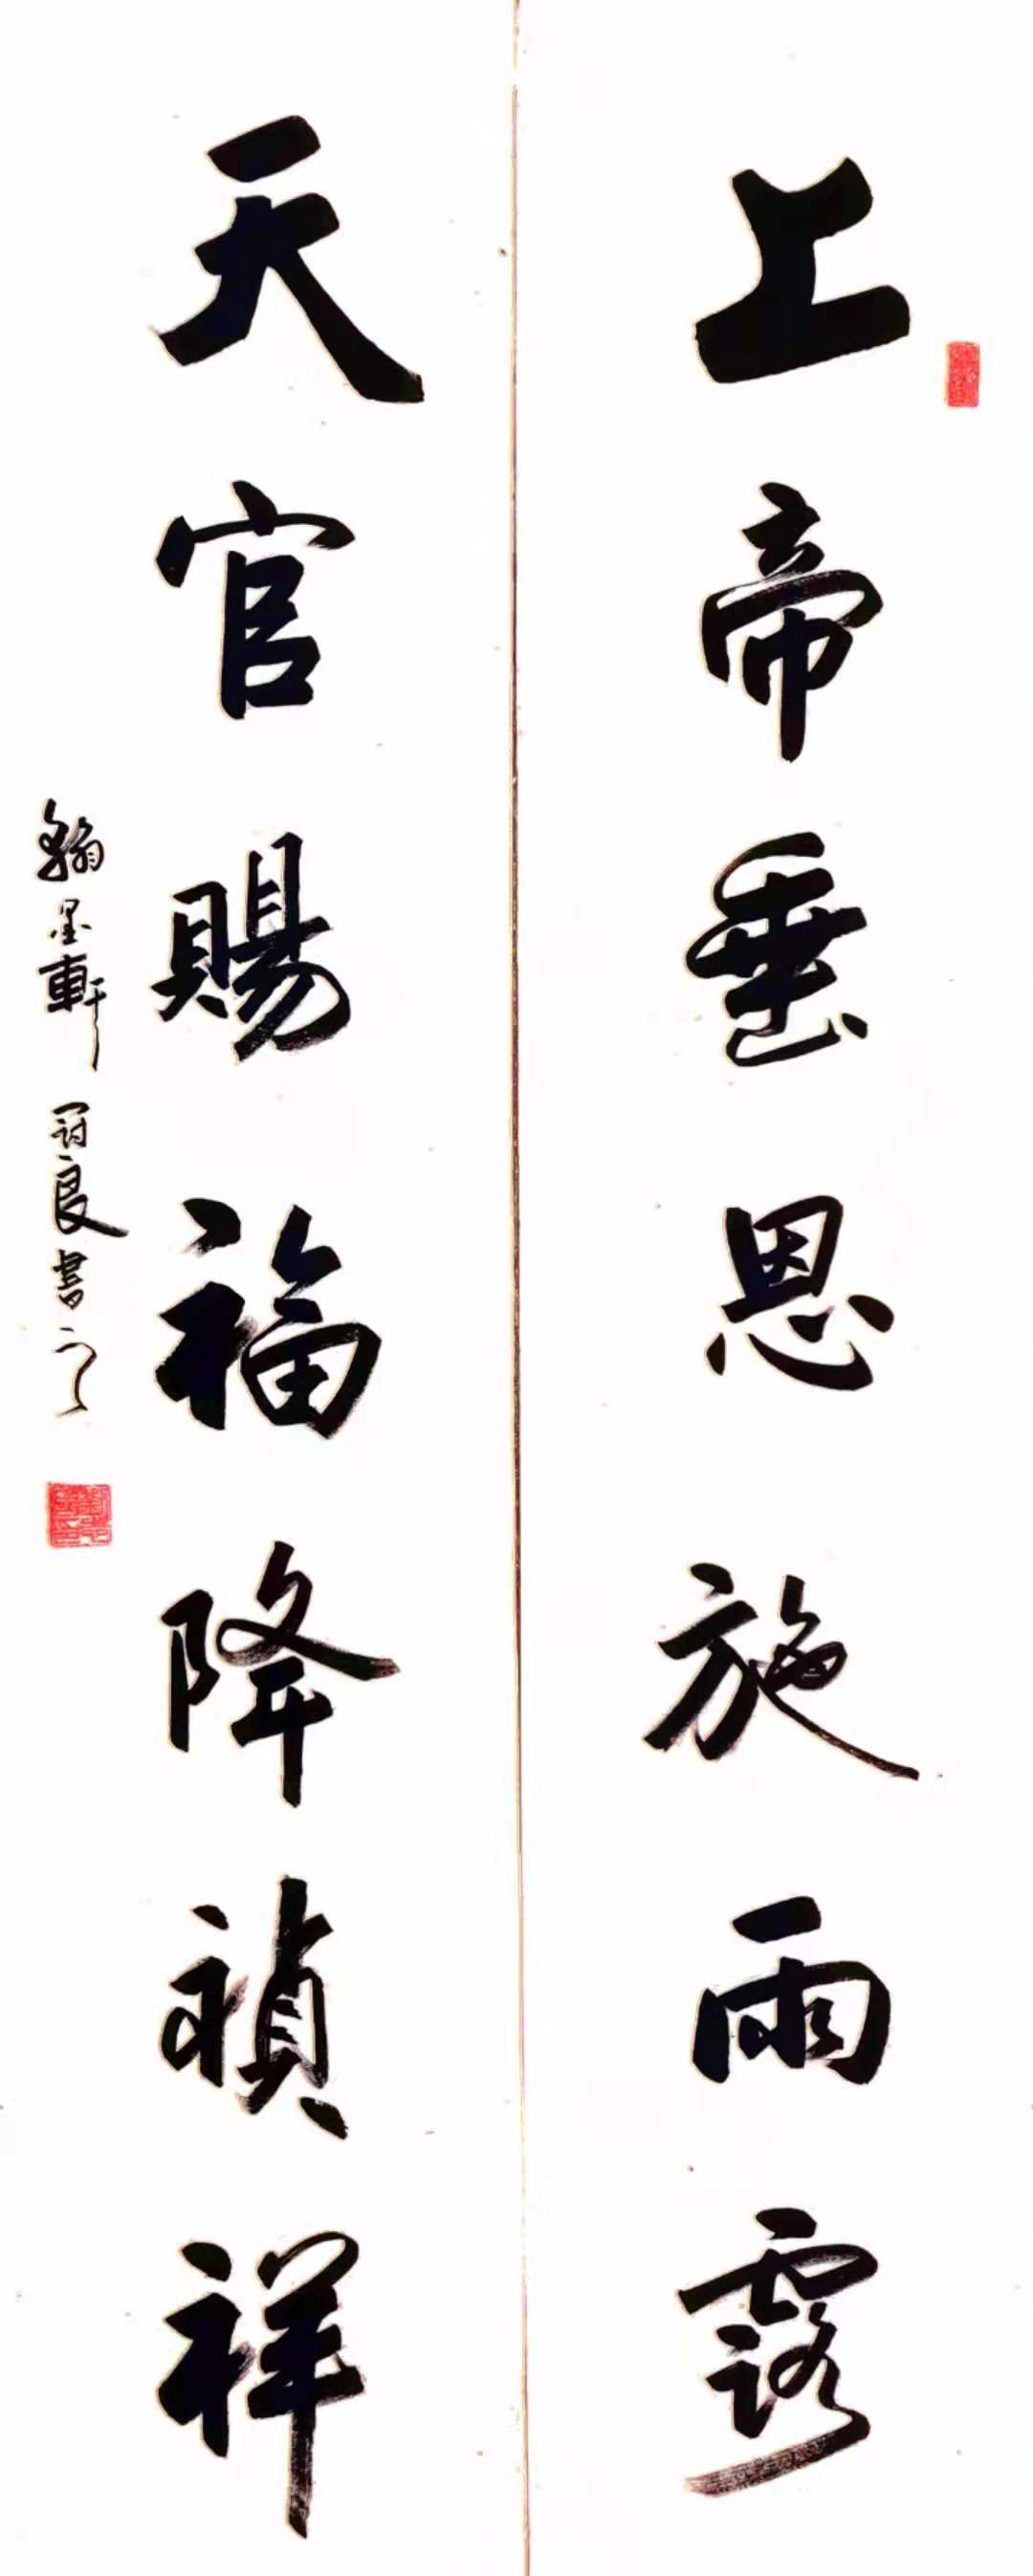 上帝垂恩施雨露
天官賜福降禎祥
翰墨軒 冠良書之